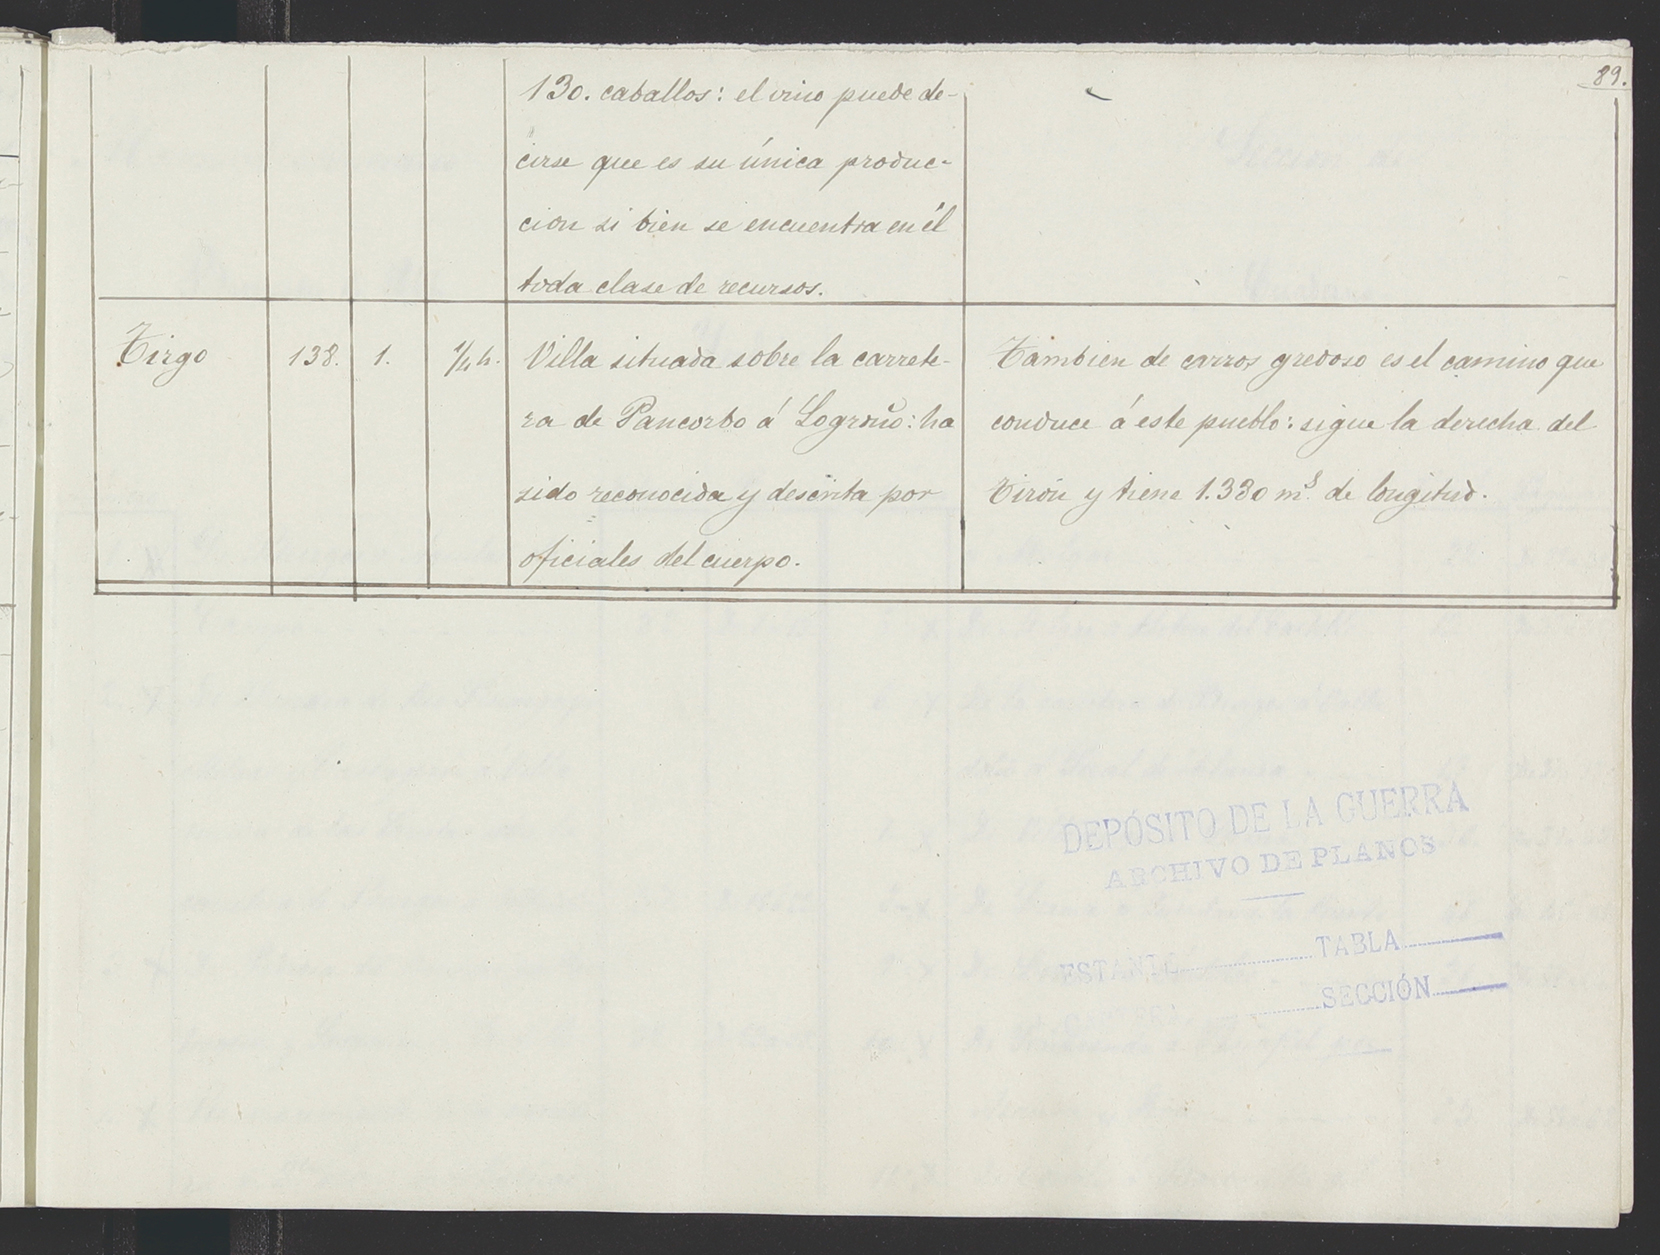 89.
130. caballos: el vino puede de-
cirse que es su única produc-
cion si bien se encuentra en él
toda clase de recursos.
Tirgo 138. 1. 1/4 h.
Villa situada sobre la carrete-
ra de Pancorbo á Logroño: ha
sido reconocida y descrita por
oficiales del cuerpo.
Tambien de carros gredoso es el camino que
conduce á este pueblo: sigue la derecha del
Tirón y tiene 1.330 ms. de longitud.
DEPÓSITO DE LA GUERRA
ARCHIVO DE PLANOS
ESTANTE TABLA
CARTERA SECCIÓN